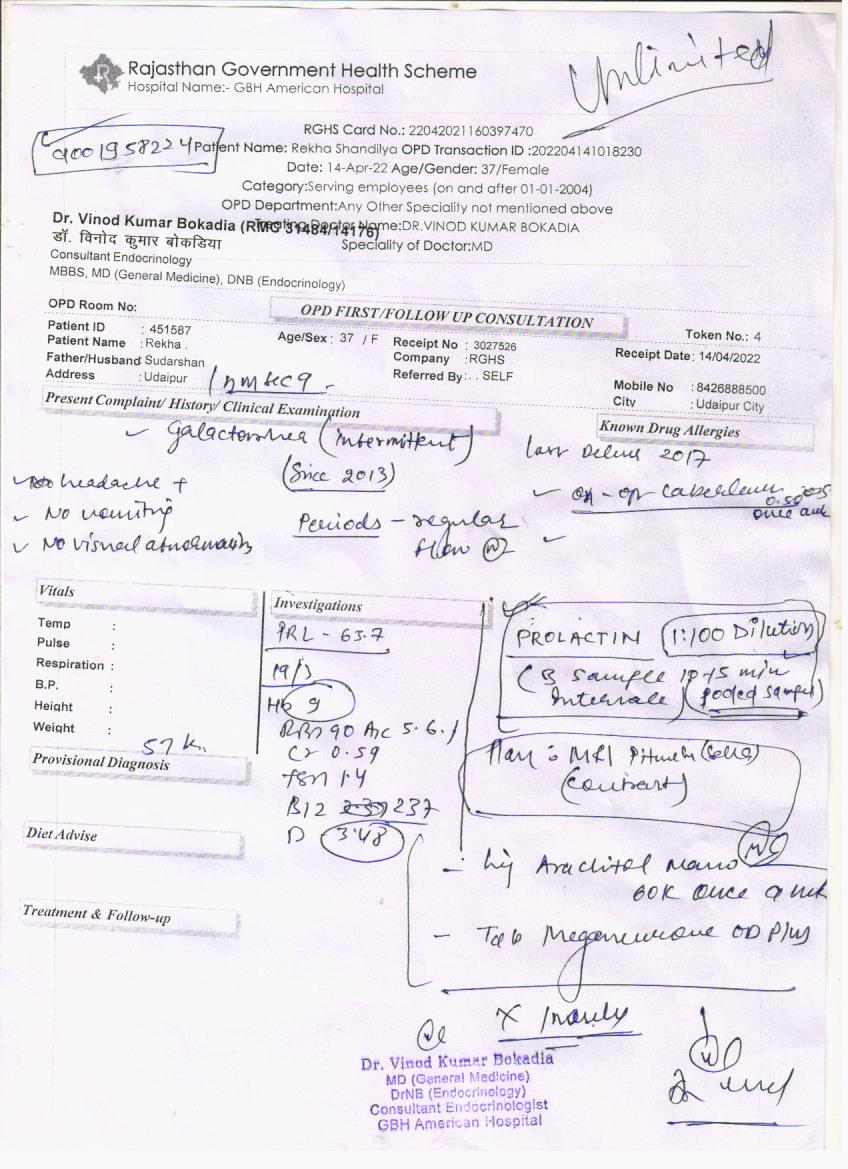 Unlimited
Rajasthan Government Health Scheme
Hospital Name:- GBH American Hospital
RGHS Card No.: 22042021160397470
9001958224
Patient Name: Rekha Shandilya OPD Transaction ID :202204141018230
Date: 14-Apr-22 Age/Gender: 37/Female
Category:Serving employees (on and after 01-01-2004)
OPD Department:Any Other Speciality not mentioned above
Dr. Vinod Kumar Bokadia (RMC 31484/14176)
Treating Doctor Name:DR.VINOD KUMAR BOKADIA
डॉ. विनोद कुमार बोकडिया
Speciality of Doctor:MD
Consultant Endocrinology
MBBS, MD (General Medicine), DNB (Endocrinology)
OPD Room No:
OPD FIRST/FOLLOW UP CONSULTATION
Token No.: 4
Patient ID : 451587
Age/Sex : 37 / F
Receipt No : 3027526
Receipt Date: 14/04/2022
Patient Name : Rekha .
Company : RGHS
Father/Husband: Sudarshan
Referred By: . . SELF
Mobile No : 8426888500
Address : Udaipur
City : Udaipur City
Present Complaint/ History/ Clinical Examination
Known Drug Allergies
Galactorrhea (intermittent)
(Since 2013)
2017
headache +
No vomiting
No visual abnormality
on - off
0.5
once a wk
Periods - regular
flow
Vitals
Temp :
Pulse :
Respiration :
B.P. :
Height :
Weight : 57 k
Provisional Diagnosis
Diet Advise
Treatment & Follow-up
Investigations
PRL - 63.7
19/3
Hb 9
90 A1c 5.6
Cr 0.59
TSH 1.4
B12 237
D 3.48
PROLACTIN (1:100 Dilution)
(3 sample 10-15 min
Intervals) (pooled sample)
Plan : MRI (sella)
(contrast)
Inj Arachitol Nano
60K once a wk
Tab Meganeurone OD Plus
Dr. Vinod Kumar Bokadia
MD (General Medicine)
DrNB (Endocrinology)
Consultant Endocrinologist
GBH American Hospital